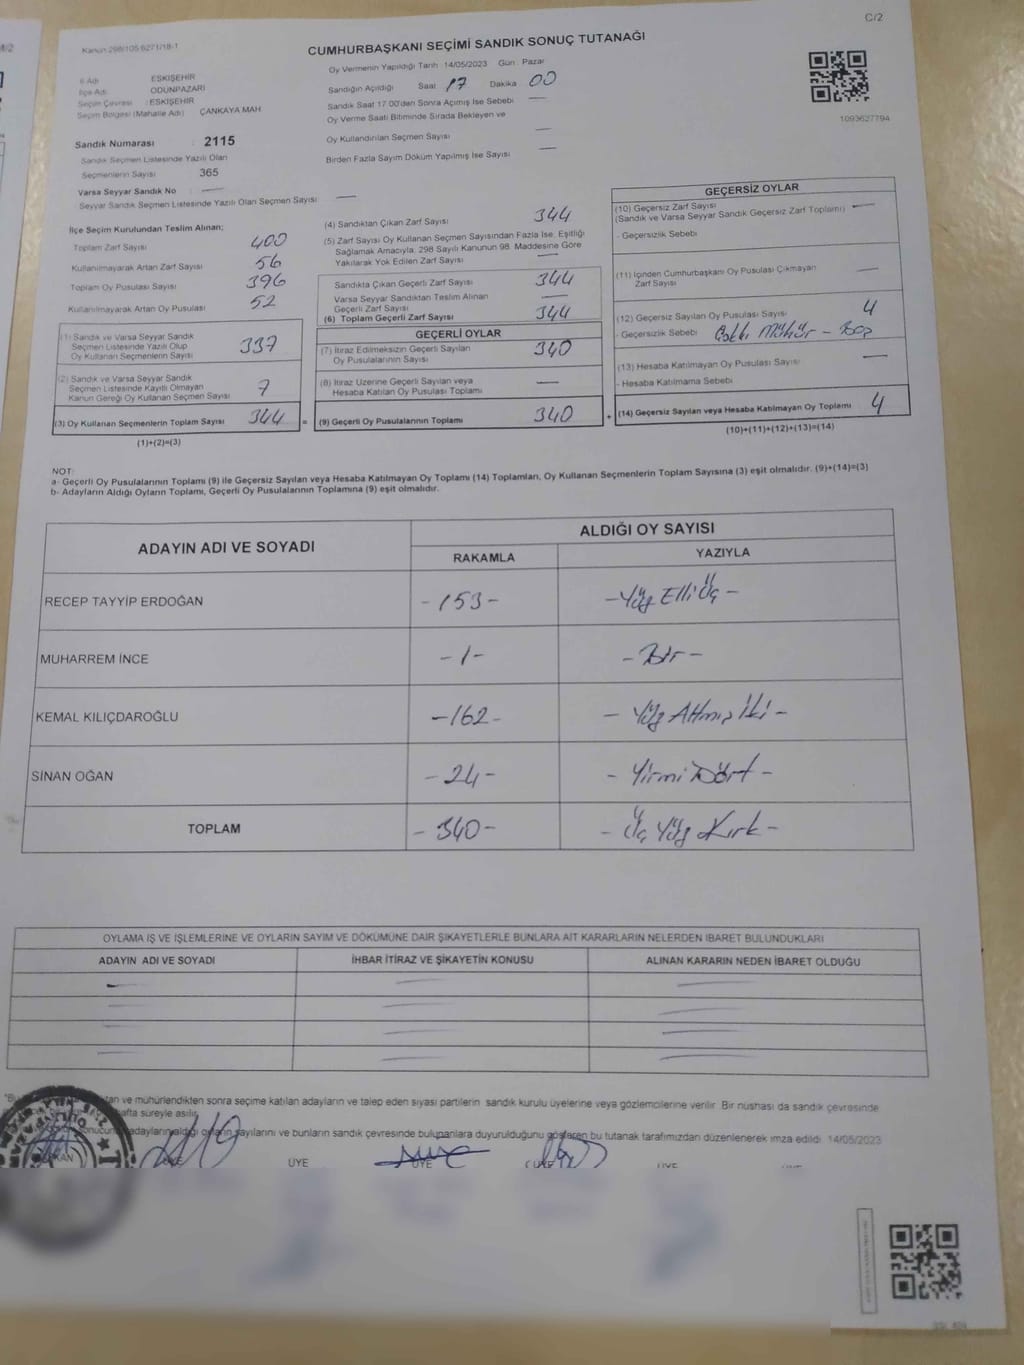 C/2
Kanun 298/105 6271/18-1
CUMHURBAŞKANI SEÇİMİ SANDIK SONUÇ TUTANAĞI
İl Adı ESKİŞEHİR
İlçe Adı ODUNPAZARI
Seçim Çevresi : ESKİŞEHİR
Seçim Bölgesi (Mahalle Adı) ÇANKAYA MAH
Sandık Numarası : 2115
Sandık Seçmen Listesinde Yazılı Olan
Seçmenlerin Sayısı 365
Varsa Seyyar Sandık No —
Seyyar Sandık Seçmen Listesinde Yazılı Olan Seçmen Sayısı —
Oy Vermenin Yapıldığı Tarih 14/05/2023 Gün Pazar
Sandığın Açıldığı Saat 17 Dakika 00
Sandık Saat 17:00'den Sonra Açılmış İse Sebebi —
Oy Verme Saati Bitiminde Sırada Bekleyen ve
Oy Kullandırılan Seçmen Sayısı —
Birden Fazla Sayım Döküm Yapılmış İse Sayısı —
1093627794
İlçe Seçim Kurulundan Teslim Alınan;
Toplam Zarf Sayısı 400
Kullanılmayarak Artan Zarf Sayısı 56
Toplam Oy Pusulası Sayısı 396
Kullanılmayarak Artan Oy Pusulası 52
(1) Sandık ve Varsa Seyyar Sandık
Seçmen Listesinde Yazılı Olup
Oy Kullanan Seçmenlerin Sayısı 337
(2) Sandık ve Varsa Seyyar Sandık
Seçmen Listesinde Kayıtlı Olmayan
Kanun Gereği Oy Kullanan Seçmen Sayısı 7
(3) Oy Kullanan Seçmenlerin Toplam Sayısı 344 =
(1)+(2)=(3)
(4) Sandıktan Çıkan Zarf Sayısı 344
(5) Zarf Sayısı Oy Kullanan Seçmen Sayısından Fazla İse, Eşitliği
Sağlamak Amacıyla, 298 Sayılı Kanunun 98. Maddesine Göre
Yakılarak Yok Edilen Zarf Sayısı —
Sandıkta Çıkan Geçerli Zarf Sayısı 344
Varsa Seyyar Sandıktan Teslim Alınan
Geçerli Zarf Sayısı —
(6) Toplam Geçerli Zarf Sayısı 344
GEÇERLİ OYLAR
(7) İtiraz Edilmeksizin Geçerli Sayılan
Oy Pusulalarının Sayısı 340
(8) İtiraz Üzerine Geçerli Sayılan veya
Hesaba Katılan Oy Pusulası Toplamı —
(9) Geçerli Oy Pusulalarının Toplamı 340 +
GEÇERSİZ OYLAR
(10) Geçersiz Zarf Sayısı
(Sandık ve Varsa Seyyar Sandık Geçersiz Zarf Toplamı) —
- Geçersizlik Sebebi
(11) İçinden Cumhurbaşkanı Oy Pusulası Çıkmayan
Zarf Sayısı —
(12) Geçersiz Sayılan Oy Pusulası Sayısı 4
- Geçersizlik Sebebi Mühür -
(13) Hesaba Katılmayan Oy Pusulası Sayısı —
- Hesaba Katılmama Sebebi
(14) Geçersiz Sayılan veya Hesaba Katılmayan Oy Toplamı 4
(10)+(11)+(12)+(13)=(14)
NOT:
a- Geçerli Oy Pusulalarının Toplamı (9) ile Geçersiz Sayılan veya Hesaba Katılmayan Oy Toplamı (14) Toplamları, Oy Kullanan Seçmenlerin Toplam Sayısına (3) eşit olmalıdır. (9)+(14)=(3)
b- Adayların Aldığı Oyların Toplamı, Geçerli Oy Pusulalarının Toplamına (9) eşit olmalıdır.
ADAYIN ADI VE SOYADI ALDIĞI OY SAYISI
RAKAMLA YAZIYLA
RECEP TAYYİP ERDOĞAN -153- -Yüz Elli Üç-
MUHARREM İNCE -1- -Bir-
KEMAL KILIÇDAROĞLU -162- - Yüz Altmış İki -
SİNAN OĞAN -24- - Yirmi Dört -
TOPLAM -340- - Üç Yüz Kırk -
OYLAMA İŞ VE İŞLEMLERİNE VE OYLARIN SAYIM VE DÖKÜMÜNE DAİR ŞİKAYETLERLE BUNLARA AİT KARARLARIN NELERDEN İBARET BULUNDUKLARI
ADAYIN ADI VE SOYADI İHBAR İTİRAZ VE ŞİKAYETİN KONUSU ALINAN KARARIN NEDEN İBARET OLDUĞU
ve mühürlendikten sonra seçime katılan adayların ve talep eden siyasi partilerin sandık kurulu üyelerine veya gözlemcilerine verilir. Bir nüshası da sandık çevresinde
hafta süreyle asılır.
adayların aldığı oyların sayılarını ve bunların sandık çevresinde bulunanlara duyurulduğunu gösteren bu tutanak tarafımızdan düzenlenerek imza edildi 14/05/2023
ÜYE ÜYE ÜYE ÜYE